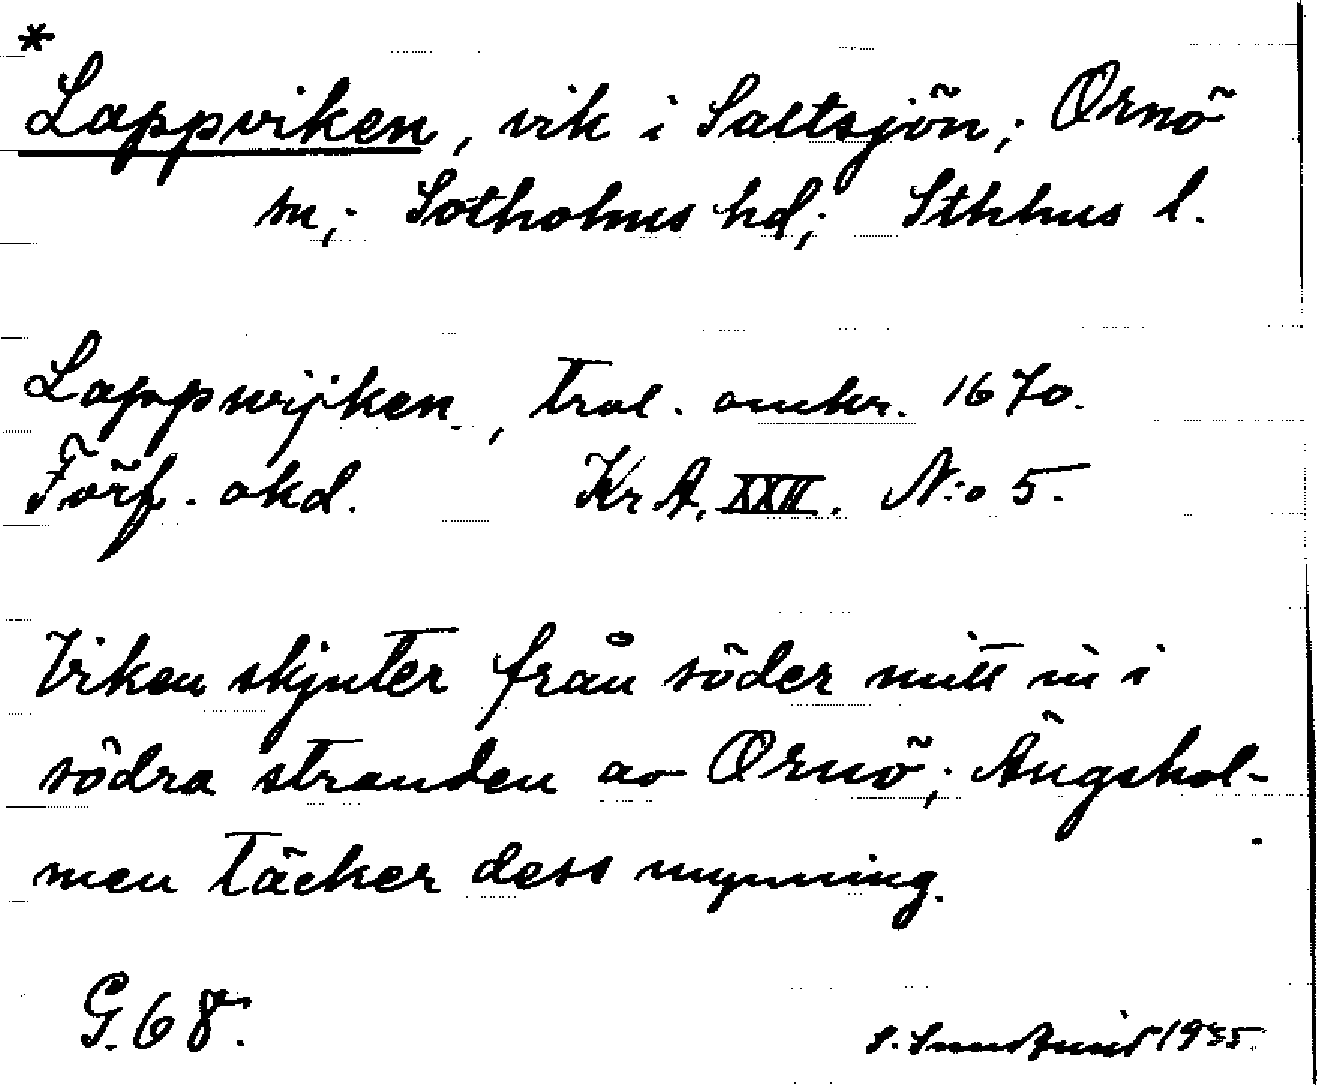 *
Lappviken, vik i Saltsjön; Ornö
sn; Sotholms hd; Sthlms l.
Lappwijken, trol. omkr. 1670.
Förf. okd. Kr A. XXII. N:o 5.
Viken skjuter från söder mitt in i
södra stranden av Ornö; Ängshol-
men täcker dess mynning.
G. 68.
S. 1935.